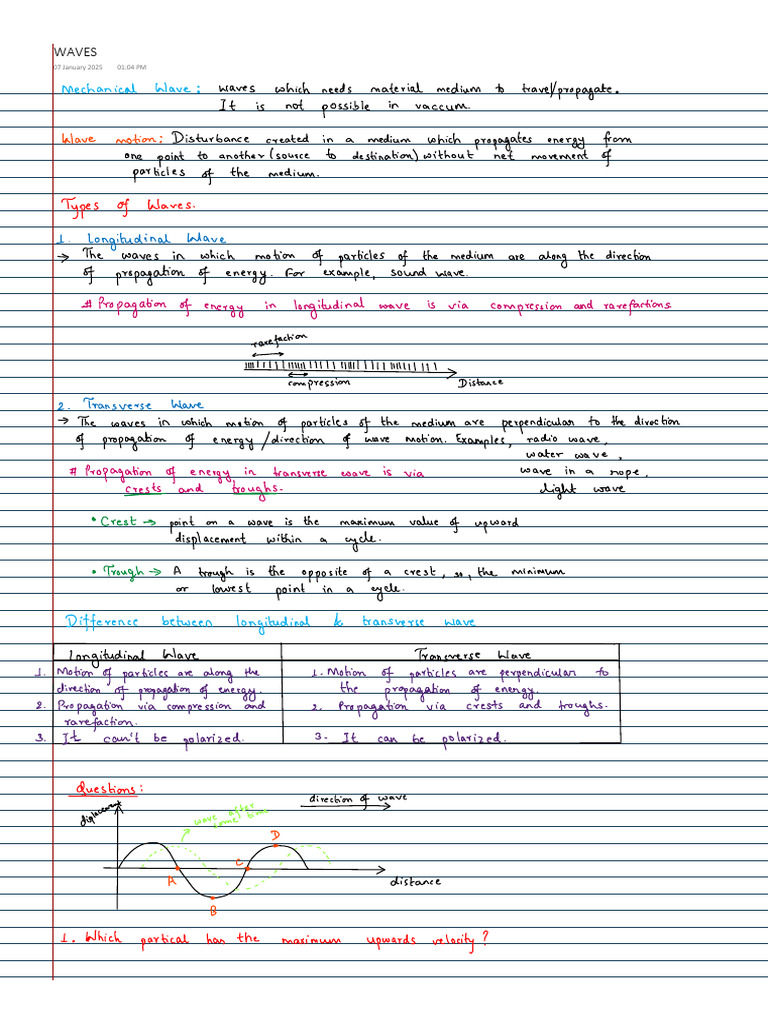 WAVES
07 January 2025 01:04 PM
Mechanical Wave: waves which needs material medium to travel/propagate.
It is not possible in vaccum.
Wave motion: Disturbance created in a medium which propagates energy from
one point to another (source to destination) without net movement of
particles of the medium.
Types of Waves.
1. Longitudinal Wave
→ The waves in which motion of particles of the medium are along the direction
of propagation of energy. For example, sound wave.
# Propagation of energy in longitudinal wave is via compression and rarefactions.
rarefaction
compression Distance
2. Transverse Wave
→ The waves in which motion of particles of the medium are perpendicular to the direction
of propagation of energy/direction of wave motion. Examples, radio wave,
water wave,
# Propagation of energy in transverse wave is via wave in a rope,
crests and troughs. light wave
• Crest → point on a wave is the maximum value of upward
displacement within a cycle.
• Trough → A trough is the opposite of a crest, so, the minimum
or lowest point in a cycle.
Difference between longitudinal & transverse wave
Longitudinal Wave Transverse Wave
1. Motion of particles are along the 1. Motion of particles are perpendicular to
direction of propagation of energy. the propagation of energy.
2. Propagation via compression and 2. Propagation via crests and troughs.
rarefaction.
3. It can't be polarized. 3. It can be polarized.
Questions:
direction of wave
displacement
wave after
some time
D
C
A
distance
B
1. Which partical has the maximum upwards velocity?